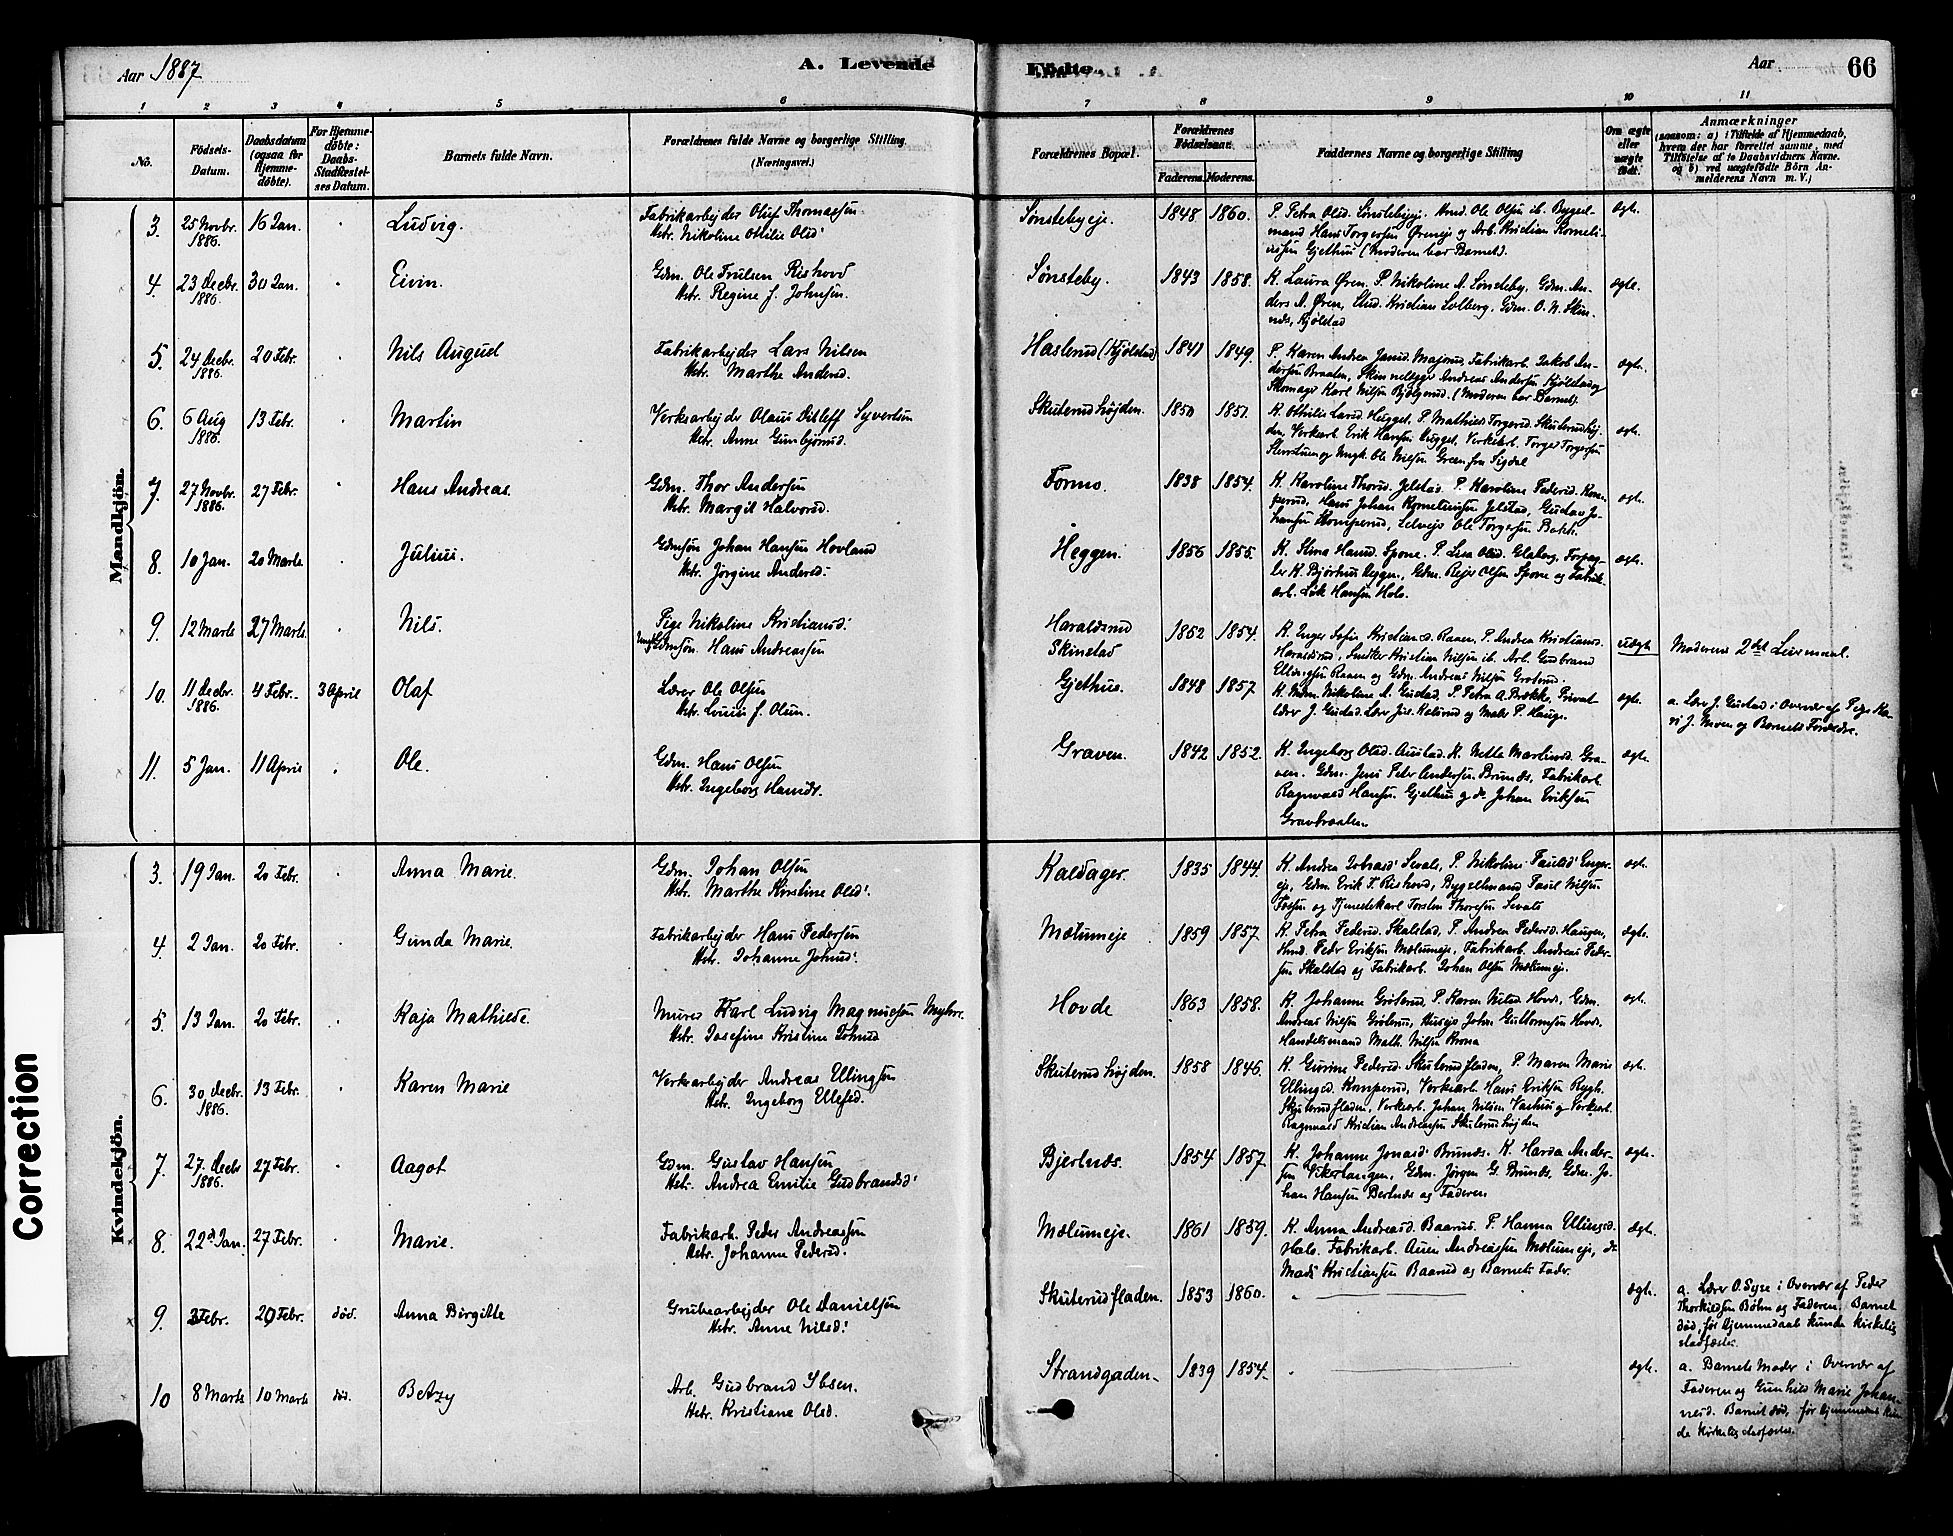 Aar 1887
A. Levende
Fødte.
Aar
66
1 2 3 4 5 6 7 8 9 10 11
No.
Födsels-Datum.
Daabsdatum (ogsaa for Hjemme-döbte).
For Hjemme-döbte: Daabs-Stadfæstel-ses Datum.
Barnets fulde Navn.
Forældrenes fulde Navne og borgerlige Stilling (Næringsvei.)
Forældrenes Bopæl.
Forældrenes Födselsaar.
Faderens. Moderens.
Faddernes Navne og borgerlige Stilling
Om ægte eller uægte födt.
Anmærkninger
(saasom: a) i Tilfælde af Hjemmedaab, hvem der har forrettet samme, med Tilföielse af to Daabsvidners Navne. og b) ved uægtefödte Börn An-melderens Navn m. V.)
Mandkjön.
3. 25 Novbr. 1886. 16 Jan. Ludvig. Fabrikarbejder Oluf Thomassen
Hstr. Nikoline Othilie Olsd.
Sønstebyeje. 1848 1860. P. Petra Olsd. Sønstebyeje. Ole Olsen ib. Bygsel-
mand Hans Torgersen Øreneje og Arb. Kristian Korneli-
ussen Gjethus (Moderen bar Barnet). ægte.
4. 23 Decbr. 1886. 30 Jan. Eivin. Gdm. Ole Trulsen Rishovd
Hstr. Regine J. Johnsen.
Sønsteby. 1843 1858. K. Laura Øren. P. Nikoline A. Sønsteby. Gdm. An-
ders A. Øren, Stud. Kristian Solberg. Gdm. O. N. Skin-
nes, Kjølstad ægte.
5. 24 Decbr. 1886. 20 Febr. Nils August Fabrikarbejder Lars Nilsen
Hstr. Marthe Andersd.
Haslerud (Kjølstad) 1841 1849. P. Karen Andrea Jansd. Majorud, Fabrikarb. Jakob An-
dersen Braaten, Andreas Andersen Kjølstad og
Skomager Karl Nilsen (Moderen bar Barnet). ægte.
6. 6 Aug 1886. 13 Febr. Martin Verksarbejder Olaus Ditleff Syvertsen
Hstr. Anne Gunbjørnsd.
Skuterudhøjden. 1850 1851. K. Othilie Larsd. Hegget. P. Mathilde Torgersd. Skuterudhøj-
den, Verksarb. Erik Hansen Hegget, Verksarb. Torger Torgersen
og Ungk. Ole Nilsen Green fra Sigdal ægte.
7. 27 Novbr. 1886. 27 Febr. Hans Andreas. Gdm. Thor Andersen
Hstr. Margit Halvorsd.
Formo. 1838 1854. K. Karoline Thorsd. Jelstad. P. Karoline Pedersd. Kom-
perud, Hans Johan Kornelinssen Jelstad, Gustav Jo-
hansen Komperud, Selvejer Ole Torgersen ægte.
8. 10 Jan. 20 Marts Julius. Gdmsøn Johan Hansen Hovland
Hstr. Jørgine Andersd.
Heggen. 1856 1855. K. Stina Hansd. Spone. P. Lisa Olsd. Glaberg, Forpag-
ter K. Bjørhus Heggen, Gdm. Rejer Olsen Spone og Fabrik-
arb. Hansen Holo. ægte.
9. 12 Marts 27 Marts. Nils. Pige Nikoline Kristiansd.
Ungk. Gdmsøn. Hans Andreassen
Haraldsrud
Skinstad 1852 1854. K. Inger Sofie Kristiansd. Raaen, P. Andrea Kristiansd.
Haraldsrud, Snedker Kristian Nilsen ib. Arb. Gudbrand
Ellingsen Raaen og Gdm. Andreas Nilsen Grøterud. uægte Moderens 2det Leiermaal.
10. 11 Decbr. 1886. 4 Febr. 3 April Olaf Lærer Ole Olsen
Hstr. Louise J. Olsen.
Gjethus. 1848 1857. K. Mdm. Nikoline A. Gustad. P. Petra A. Brække, Privat-
lærer J. Gustad. Lærer Jul. og Maler P. Hauge. ægte. a. Lærer J. Gustad i Overvær af Pige Ka-
ri J. Moen og Barnets Forældre.
11. 5 Jan. 11 April Ole. Gdm. Hans Olsen
Hstr. Ingeborg Hansdr.
Graven. 1842 1852. K. Ingeborg Olsd. Austad. K. Netta Martinsd. Gra-
ven. Gdm. Jens Peter Andersen Brunæs, Fabrikarb.
Ragnvald Hansen Gjethus og do Johan Eriksen
Gravbraaten ægte.
Kvindekjön.
3. 19 Jan. 20 Febr. Anna Marie. Gdm. Johan Olsen
Hstr. Marthe Kirstine Olsd.
Kaldager. 1835 1844. K. Andrea Sevals, P. Nikoline Paulsd. Enger-
eje, Gdm. Erik T. Rishovd, Bygselmand Paul Nilsen
Fossen og Tjenestekarl Torsten Thoresen Sevals ægte.
4. 2 Jan. 20 Febr. Gunda Marie. Fabrikarbejder Hans Pedersen
Hstr. Johanne Johnsd.
Mælumeje 1859 1857. K. Petra Pedersd. Skalstad, P. Andrea Pedersd. Haugen,
Hmd. Peder Eriksen Mælumeje, Fabrikarb. Andreas Peder-
sen Skalstad og Fabrikarb. Johan Olsen Mælumeje. ægte.
5. 13 Jan. 20 Febr. Kaja Mathilde. Murer Karl Ludvig Magnussen Myhre.
Hstr. Josefine Kristine Johnsd
Hovde 1863 1858. K. Johanne Grøterud, P. Karen Nilsd. Hovde, Gdm.
Andreas Nilsen Grøterud, Husejer Johan Guttormsen Hovde.
Handelsmand Math. Nilsen Krona ægte.
6. 30 Decbr. 1886. 13 Febr. Karen Marie Verksarbejder Andreas Ellingsen
Hstr. Ingeborg Ellefsd.
Skuterudhøjden. 1858 1846. K. Gurine Pedersd. Skuterudfladen, P. Maren Marie
Ellingsd. Komperud, Verksarb. Hans Eriksen Rygh.
Skuterudfladen, Verksarb. Johan Nilsen Vashus og Verksarb.
Ragnvald Kristian Andreassen Skuterudhøjden ægte.
7. 27. Decbr 1886. 27 Febr. Aagot Gdm. Gustav Hansen
Hstr. Andrea Emilie Gudbrandsd.
Bjertnæs. 1854 1857 K. Johanne Jonasd. Brunæs. K. Harda Ander-
sen Vikertangen, Gdm. Jørgen G. Brunæs, Gdm. Jo-
han Hansen Bertnæs og Faderen ægte.
8. 22d Jan. 27 Febr. Marie. Fabrikarb. Peder Andreassen
Hstr. Johanne Pedersd.
Mælumeje. 1861 1859. K. Anna Andreasd. Baarud. P. Hanna Ellingsd.
Holo. Fabrikarb. Auen Andreassen Mælumeje, do
Mads Kristiansen Baarud og Barnets Fader. ægte.
9. 3 Febr. 20 Febr. død. Anna Birgitte Grubearbejder Ole Danielsen
Hstr. Anne Nilsd.
Skuterudfladen. 1853 1860. ægte. a. Lærer O. Syse i Overvær af Peder
Thorkildsen Bøhn og Faderen. Barnet
død, før Hjemmedaab kunde kirkelig
stadfæstes.
10 8 Marts 10 Marts død. Betzy Arb. Gudbrand Ibsen.
Hstr. Kristiane Olsd.
Strandgaden. 1839 1854. ægte. a. Barnets Moder i Overvær af
Faderen og Gunhild Marie Johan-
nesd. Barnet død, før Hjemmedaab kun-
de kirkelig stadfæstes.
Correction